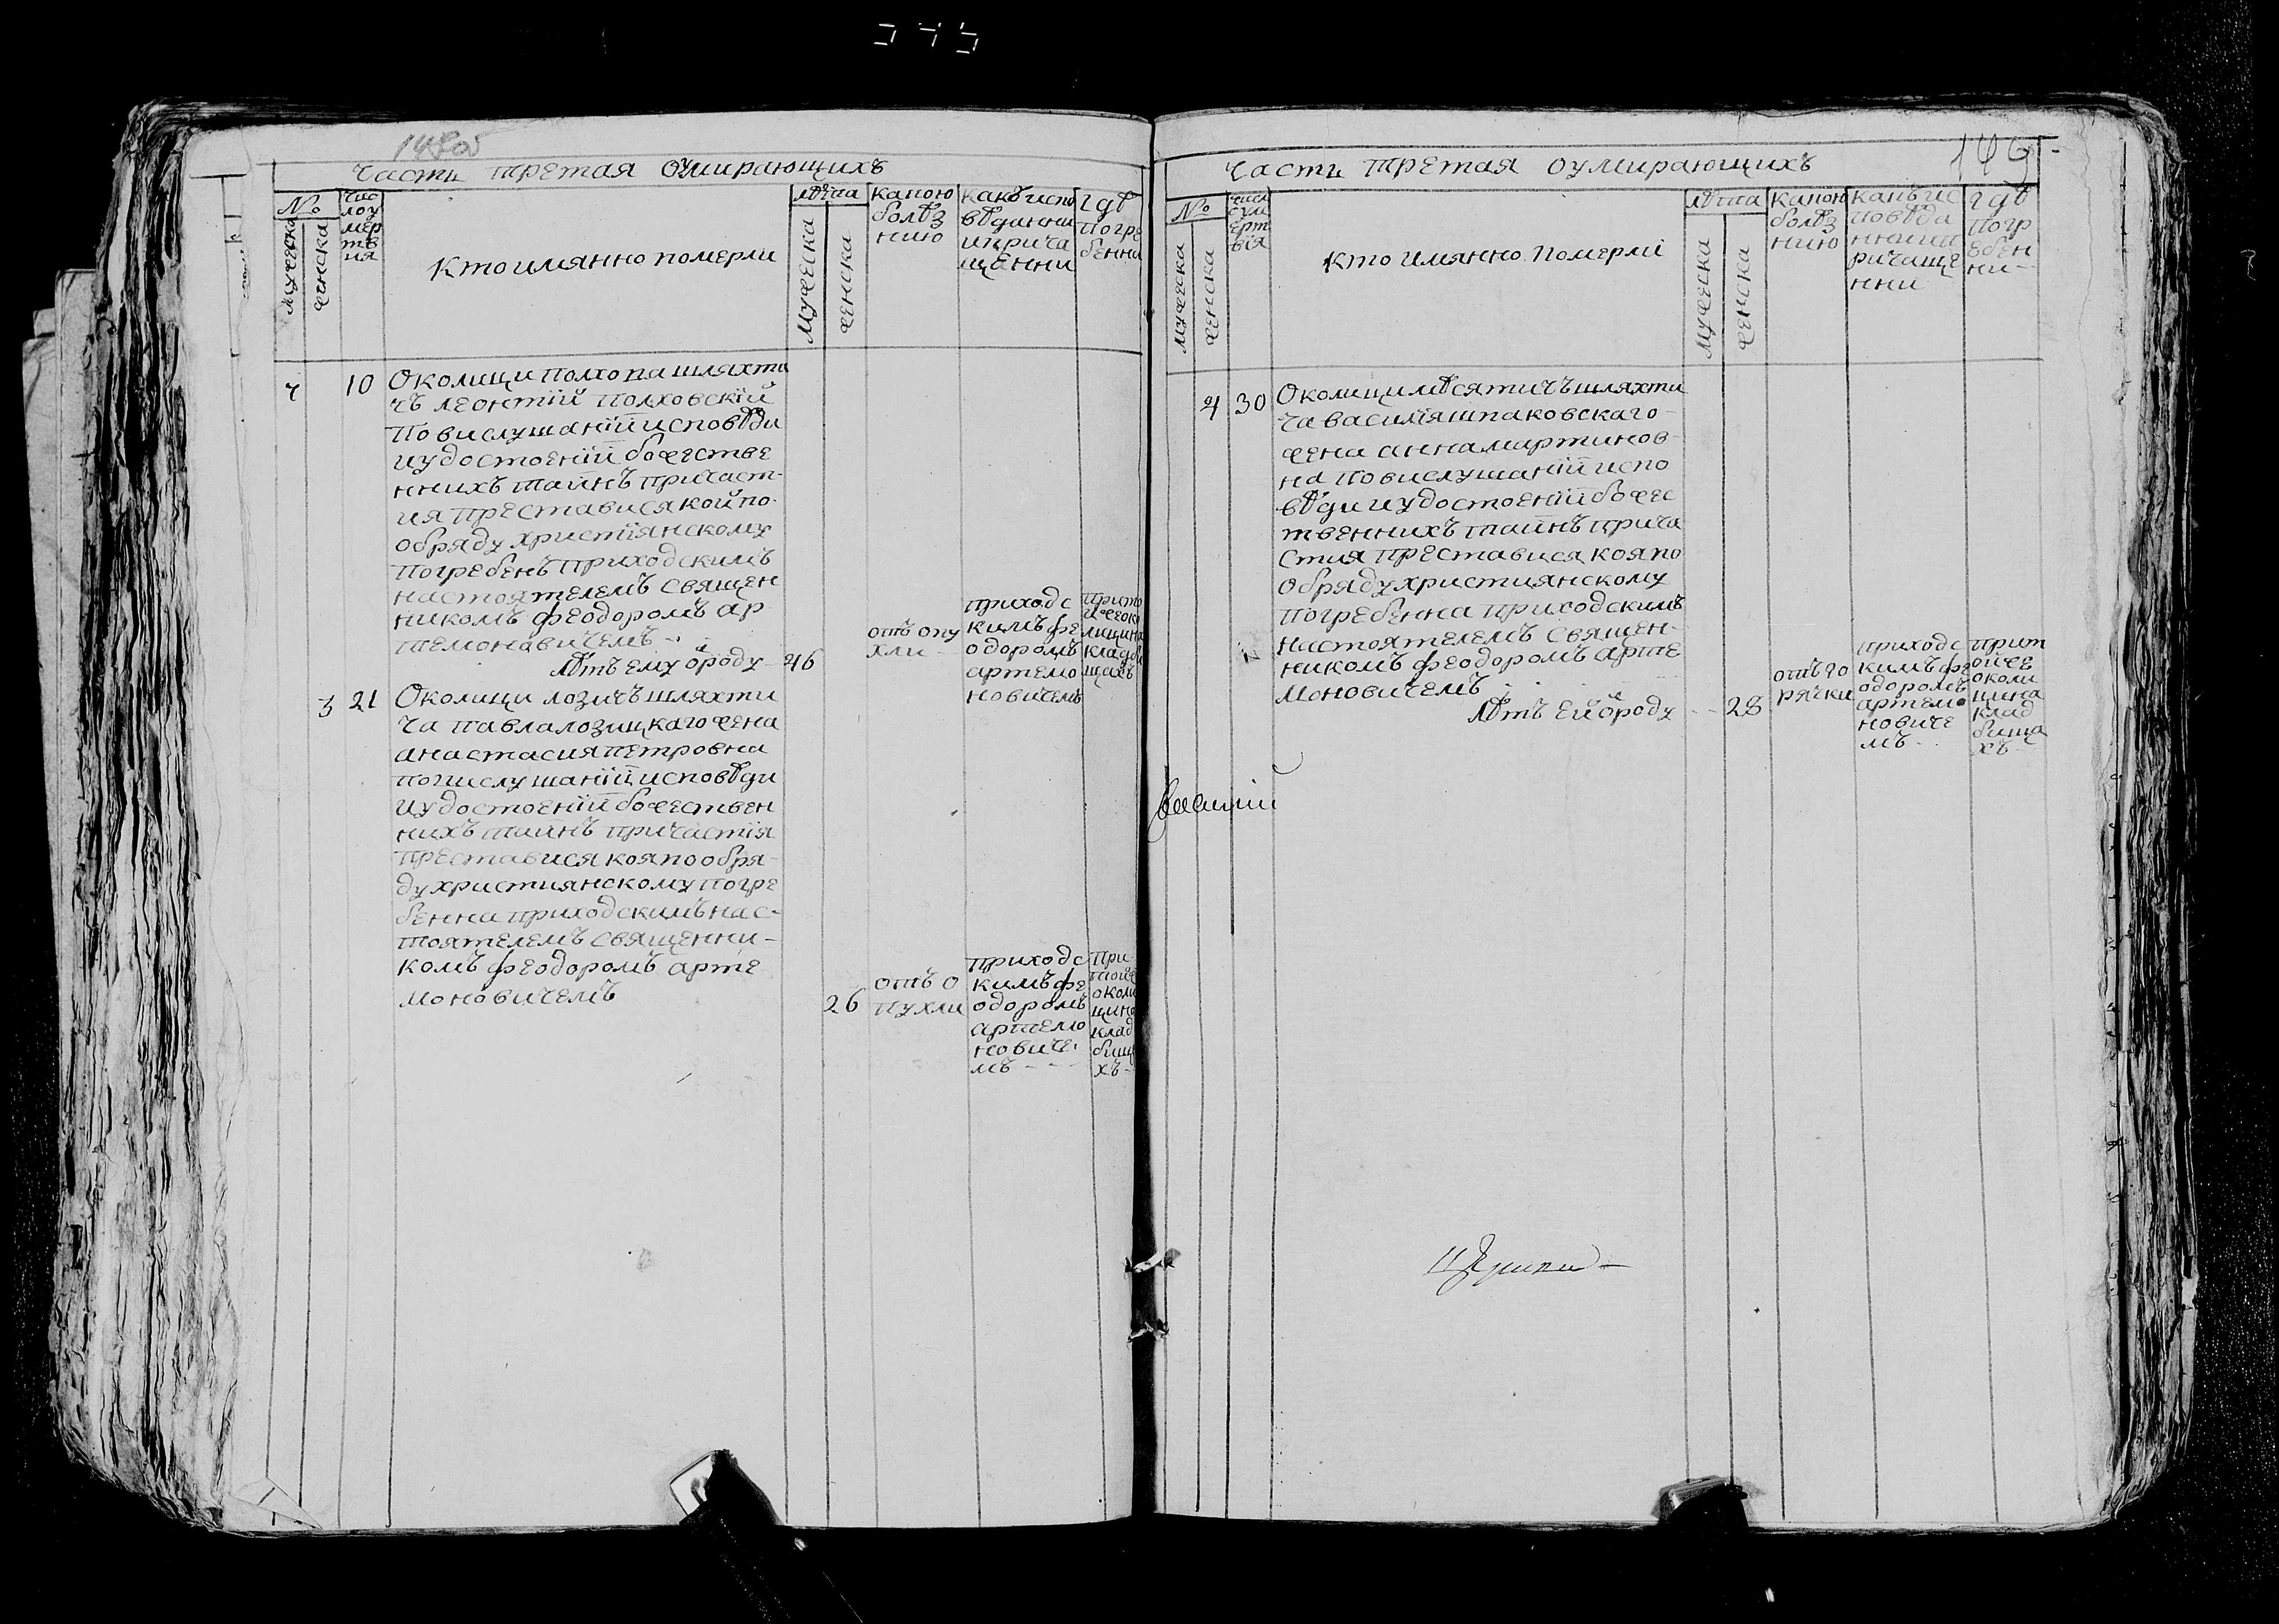 часть третая оумирающихъ
№
мужеска
женска
чис
лоу
мер
тв
ия
кто имянно померли
лѣта
мужеска
женска
какою
болѣз
нию
какъ испо
вѣданни
и прича
щенни
гдѣ
погре
бенни
4
10
Околици полхова шляхти
чъ леонтїй полховскїй
по вислушанїй исповѣди
и удостоенїй божестве
ннихъ тайнъ причаст-
ия преставися кой по-
обряду християнскому
погребенъ приходскимъ
настоятелемъ священ
никомъ феодоромъ ар
темоновичемъ
лѣтъ ему ѿроду
46
отъ опу
хли
приходс
кимъ фе
одоромъ
артемо
новичемъ
при то
йже око
лици на
кладби
щахъ
3
21
Околици лозичъ шляхти
ча павла лозицкаго жена
анастасия петровна
по вислушанїй исповѣди
и удостоенїй божествен
нихъ тайнъ причастїя
преставися коя по обря-
ду християнскому погре
бенна приходскимъ нас-
тоятелемъ священни-
комъ феодоромъ арте
моновичемъ
26
отъ о
пухли
приходс
кимъ фе
одоромъ
артемо
нович е
мъ
при
той же
околи
ци на
клад
бища
хъ
часть третая оумирающихъ
№
мужеска
женска
числ
о ум
ерт
вїя
кто имянно померлї
лѣта
мужеска
женска
какою
болѣз
нию
какъ ис
повѣда
нни и п
ричаще
нни
гдѣ
погр
ебен
ни
4
30
Околици мѣсятичъ шляхти
ча василїя шпаковскаго
жена анна мартинов-
на по вислушанїй испо
вѣди и удостоенїй божес
твеннихъ тайнъ прича
стия преставися коя по
обряду християнскому
погребенна приходскимъ
настоятелемъ священ-
никомъ феодоромъ арте
моновичемъ
лѣтъ ей ѿроду
28
отъ го
рячки
приходс
кимъ фе
одоромъ
артемо
новиче
мъ
при т
ой же
околи
ци на
клад
бища
хъ